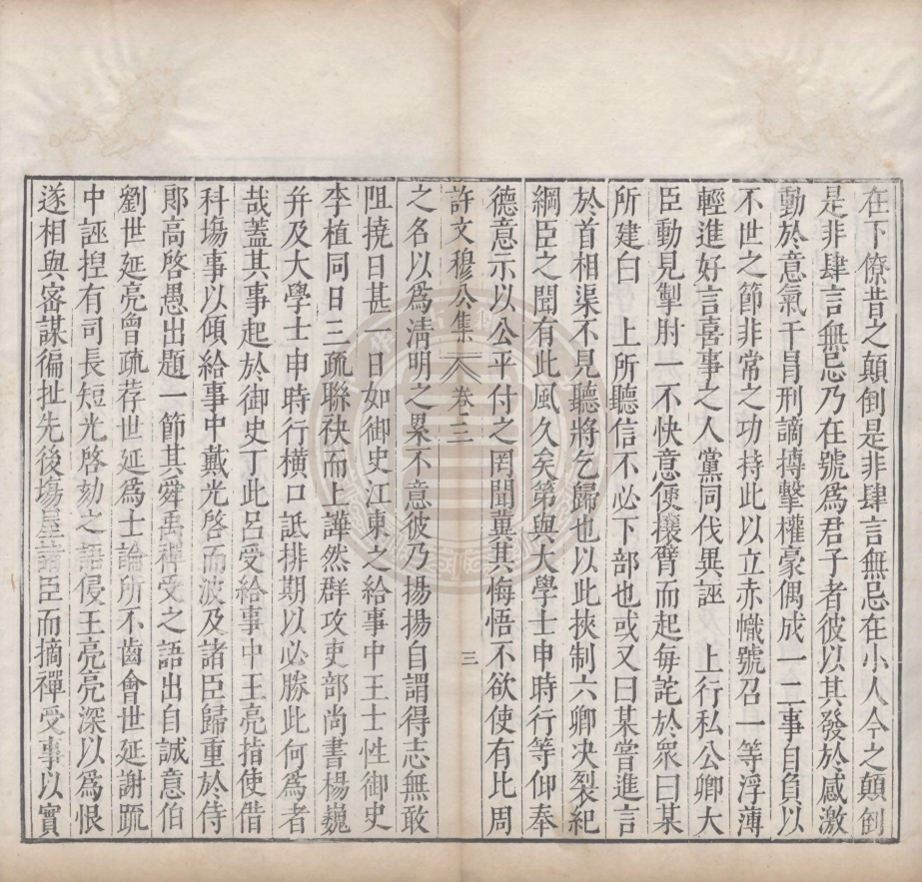 在下僚昔之顛倒是非肆言無忌在小人今之顛倒
是非肆言無忌乃在號爲君子者彼以其發於感激
動於意氣干冒刑謫摶擊權豪偶成一二事自負以
不世之節非常之功持此以立赤幟號召一等浮薄
輕進好言喜事之人黨同伐異誣　上行私公卿大
臣動見掣肘一不快意便攘臂而起每詫於衆曰某
所建白　上所聽信不必下部也或又曰某嘗進言
於首相渠不見聽將乞歸也以此挾制六卿决裂紀
綱臣之聞有此風久矣第與大學士申時行等仰奉
德意示以公平付之罔聞冀其悔悟不欲使有比周
許文穆公集　卷二　三
之名以爲清明之累不意彼乃揚揚自謂得志無敢
阻撓日甚一日如御史江東之給事中王士性御史
李植同日三疏聯袂而上譁然群攻吏部尚書楊巍
并及大學士申時行橫口詆排期以必勝此何爲者
哉蓋其事起於御史丁此呂受給事中王亮指使借
科塲事以傾給事中戴光啓而波及諸臣歸重於侍
郎高啓愚出題一節其舜禹禪受之語出自誠意伯
劉世延亮曾疏荐世延爲士論所不齒會世延謝䟽
中誣揑有司長短光啓劾之語侵王亮亮深以爲恨
遂相與密謀徧扯先後塲屋諸臣而摘禪受事以實